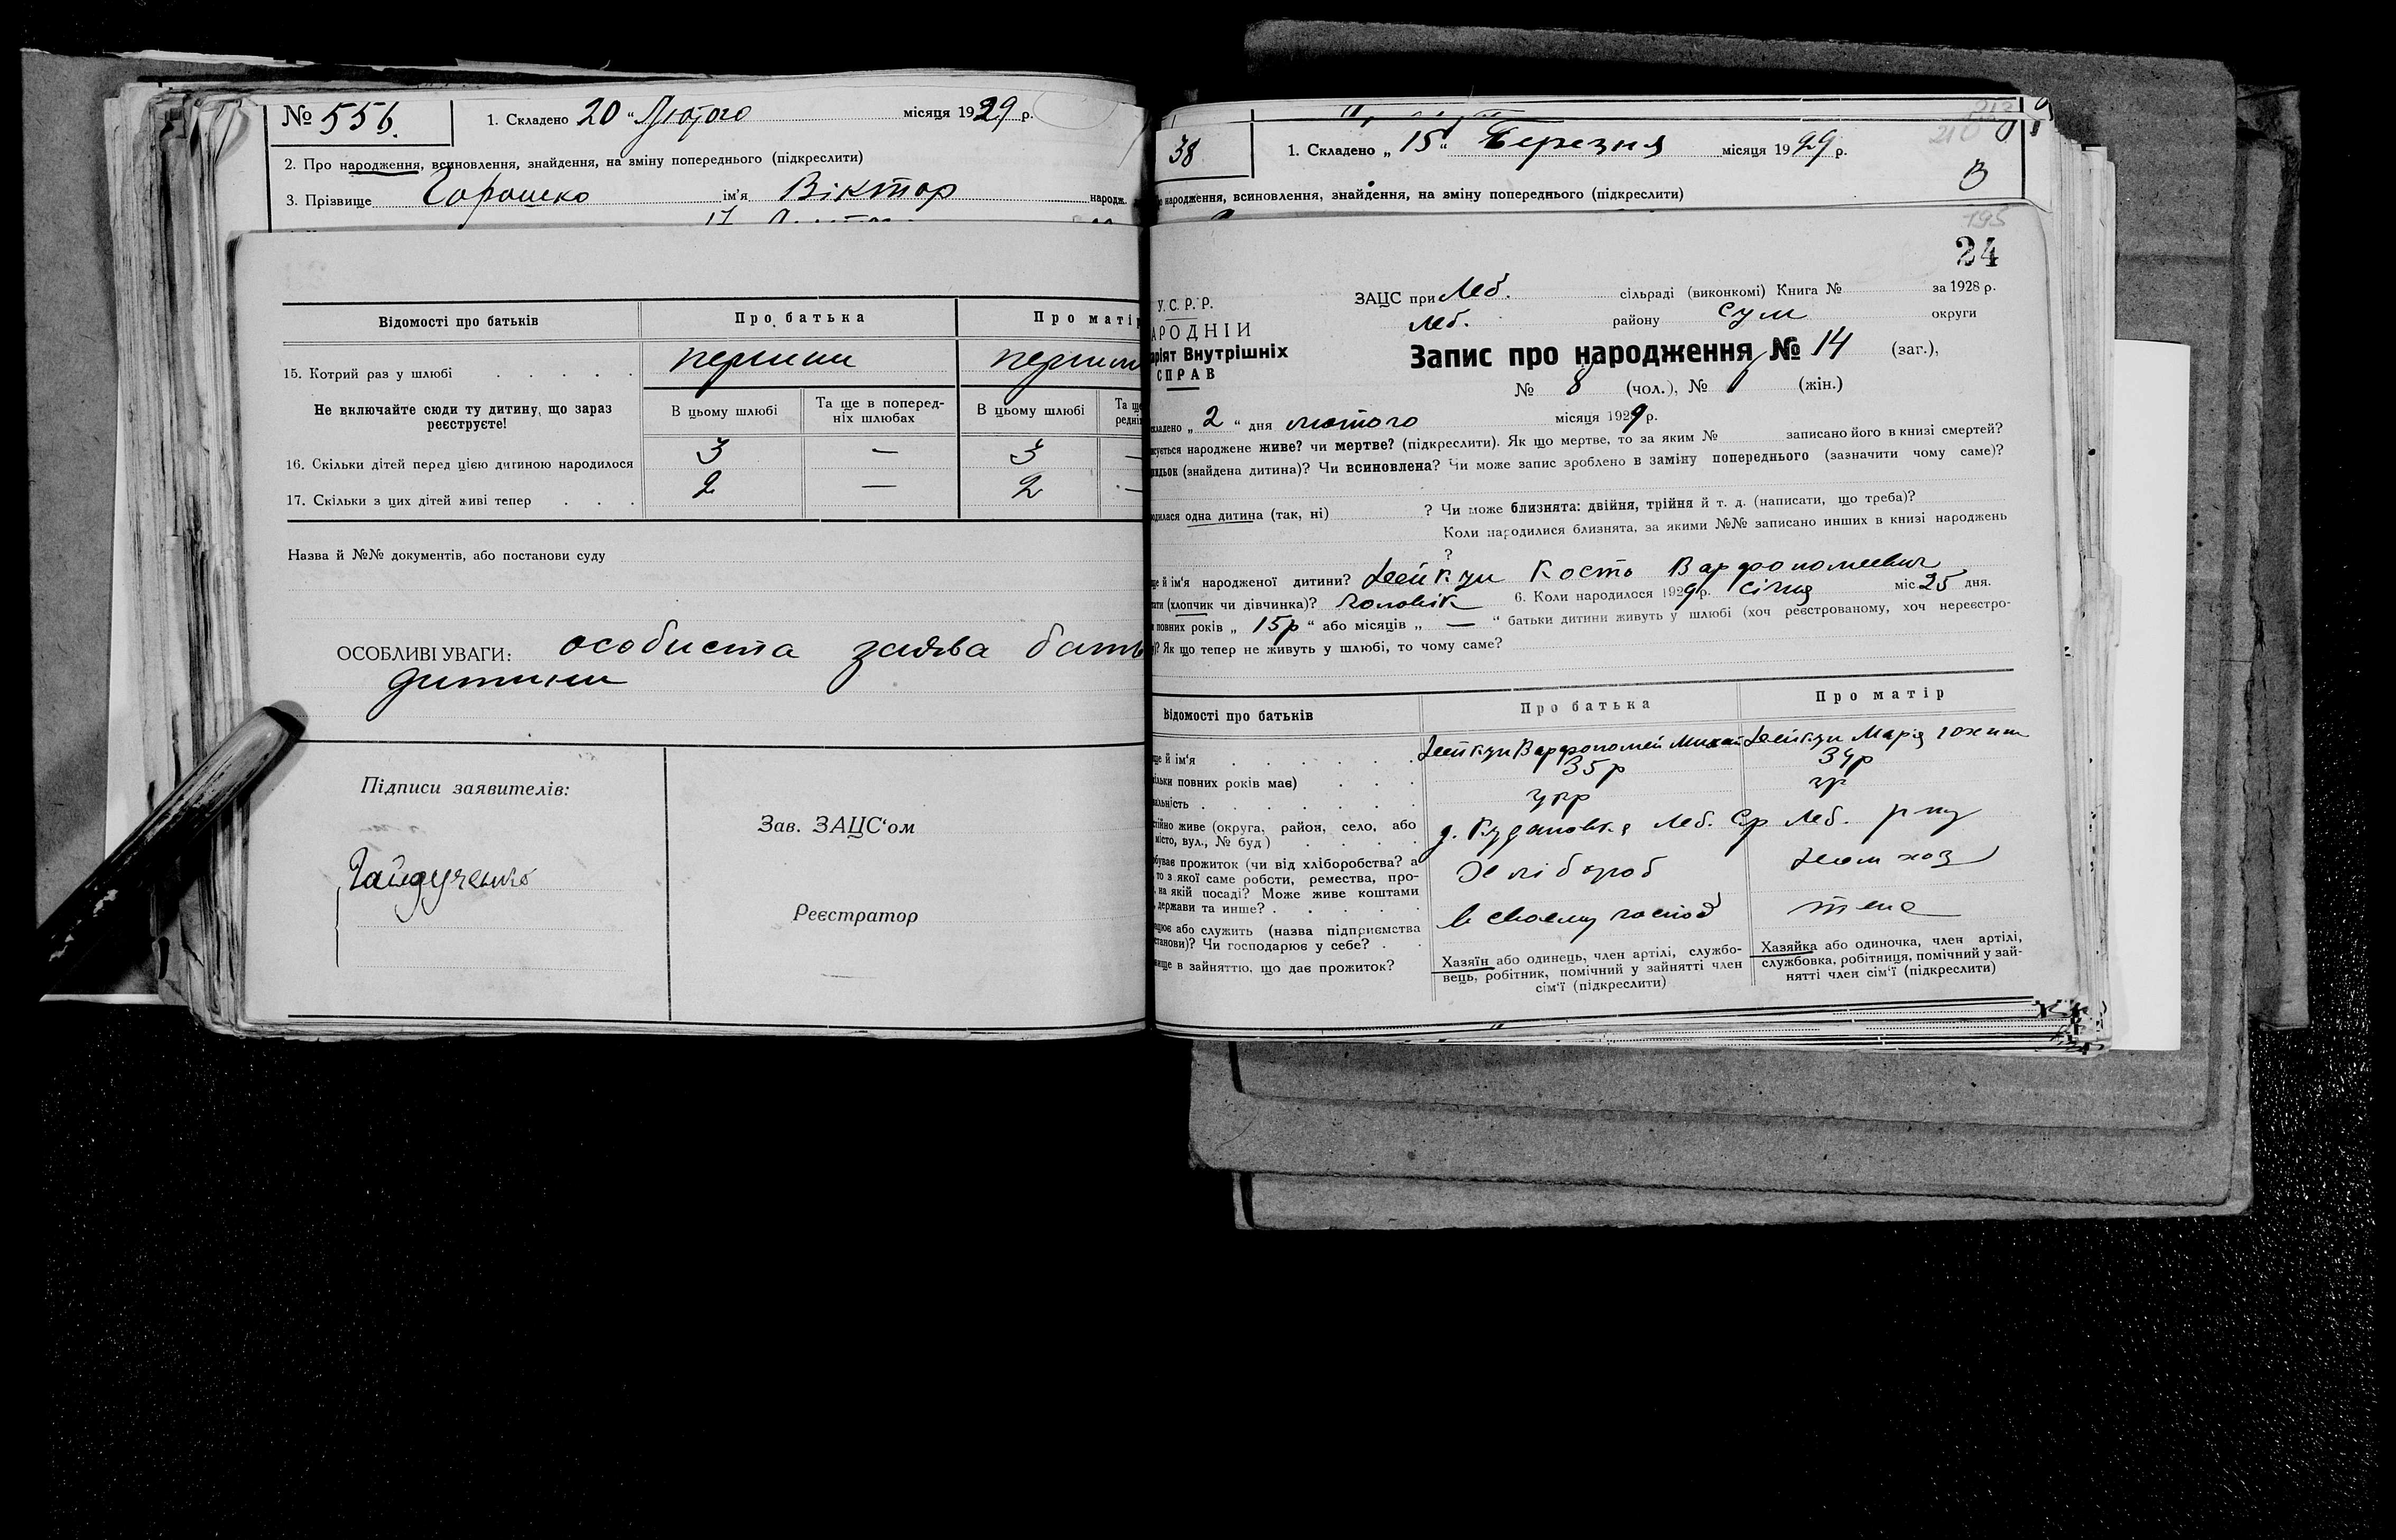 № 556.
1. Складено 20 " Лютого місяця 1929 р.
2. Про народження, всиновлення, знайдення, на зміну попереднього (підкреслити)
3. Прізвище Горошко ім'я Віктор народж.
Відомості про батьків
Про батька
Про матір
15. Котрий раз у шлюбі . . . . .
перший
Не включайте сюди ту дитину, що зараз
реєструєте!
В цьому шлюбі
Та ще в поперед-
ніх шлюбах
В цьому шлюбі
16. Скільки дітей перед цією дитиною народилося
3 — 3 —
17. Скільки з цих дітей живі тепер . . .
2 — 2 —
Назва й №№ документів, або постанови суду
ОСОБЛИВІ УВАГИ: особиста заява бать
дитини
Підписи заявителів:
Гайдученко
Зав. ЗАЦС'ом
Реєстратор
38
1. Складено „ 15 " Березня місяця 1929 р.
народження, всиновлення, знайдення, на зміну попереднього (підкреслити)
В
195
24
У.С.Р.Р.
АРОДНІЙ
ріят Внутрішніх
СПРАВ
ЗАЦС при Леб. сільраді (виконкомі) Книга № за 1928 р.
Леб. району Сум округи
Запис про народження № 14 (заг.),
№ 8 (чол.), № (жін.)
складено „ 2 " дня лютого місяця 1929 р.
сується народжене живе? чи мертве? (підкреслити). Як що мертве, то за яким № записано його в книзі смертей?
идьок (знайдена дитина)? Чи всиновлена? Чи може запис зроблено в заміну попереднього (зазначити чому саме)?
одилася одна дитина (так, ні) ? Чи може близнята: двійня, трійня й т. д. (написати, що треба)?
Коли народилися близнята, за якими №№ записано инших в книзі народжень
?
ще й ім'я народженої дитини? Дейкун Кость Варфоломеевич
(хлопчик чи дівчинка)? чоловік 6. Коли народилося 1929 р. січня міс 25 дня.
повних років „ 15р " або місяців „ — " батьки дитини живуть у шлюбі (хоч реєстрованому, хоч нереєстро-
? Як що тепер не живуть у шлюбі, то чому саме?
Відомості про батьків
Про батька
Про матір
ще й ім'я . . . . . .
Дейкун Варфоломей Михай
Дейкун Марія
ільки повних років має) . . .
35р
34р
альність . . . . . . .
укр
ур
ійно живе (округа, район, село, або
місто, вул., № буд) . . . .
Леб. Ср Леб. р-ну
обуває прожиток (чи від хліборобства? а
то з якої саме роботи, ремества, про-
на якій посаді? Може живе коштами
держави та инше? . . . . .
Хлібороб
Дом хоз
ацює або служить (назва підприємства
станови)? Чи господарює у себе? .
в своему господ
теж
вище в зайняттю, що дає прожиток?
Хазяїн або одинець, член артілі, службо-
вець, робітник, помічний у зайнятті член
сім'ї (підкреслити)
Хазяйка або одиночка, член артілі,
службовка, робітниця, помічний у зай-
нятті член сім'ї (підкреслити)